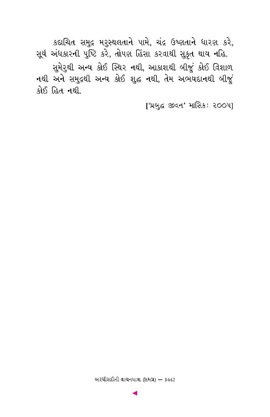 કદાચિત સમુદ્ર મરુસ્થલતાને પામે, ચંદ્ર ઉષ્ણતાને ધારણ કરે,
સૂર્ય અંધકારની પુષ્ટિ કરે, તોપણ હિંસા કરવાથી સુકૃત થાય નહિ.
સુમેરુથી અન્ય કોઈ સ્થિર નથી, આકાશથી બીજું કોઈ વિશાળ
નથી અને સમુદ્રથી અન્ય કોઈ શુદ્ધ નથી, તેમ અભયદાનથી બીજું
કોઈ હિત નથી.
['પ્રબુદ્ધ જીવન' માસિક: ૨૦૦૫]